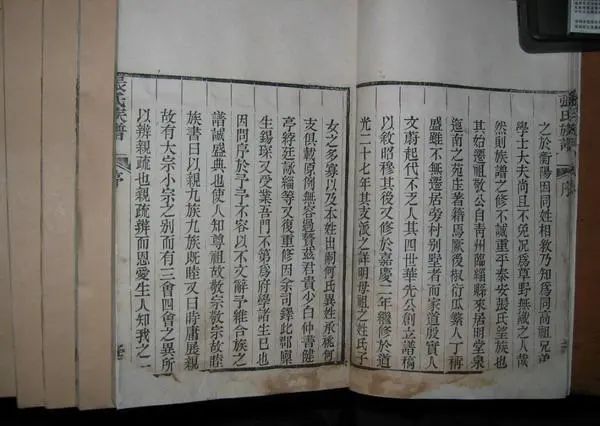 張氏族譜
序
之於衡陽因同姓相敘乃知為同高祖兄弟
學士大夫尚且不免況為草野無識之人哉
然則族譜之修不誠重乎泰安張氏望族也
其始遷祖敬公自青州臨緇縣來居明堂泉
迤南之苑庄著籍焉厥後椒衍瓜繁人丁稱
盛雖不無遷居旁村別墅者而家道殷實人
文蔚起代不乏人其四世華先公創立譜稿
以敘昭穆其後又修於嘉慶二年繼修於道
光二十七年其支派之詳明母祖之姓氏子
女之多寡以及本姓出嗣何氏異姓承祧何
支俱載原例無容過贅茲君貴少白仲菩健
亭絳廷詠緇等又復重修因余司鐸此廩
生錫琛又受業吾門不第為府學諸生已也
因問序於予予不容以不文辭予維合族之
譜誠盛典也使人知尊祖故敬宗敬宗故睦
族書曰以親九族九族既睦又曰時庸展親
故有大宗小宗之別而有三會四會之異所
以辨親疏也親疏辨而恩愛生人知我之一
張氏族譜
序